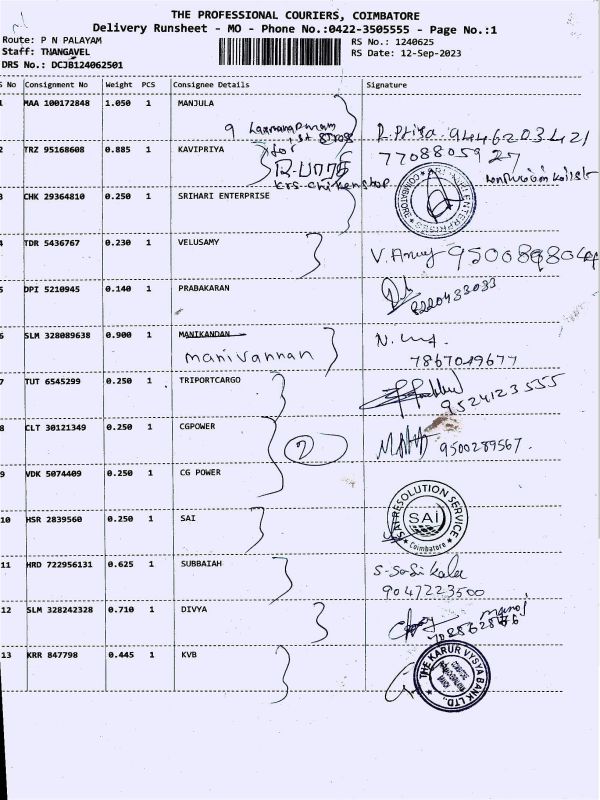 THE PROFESSIONAL COURIERS, COIMBATORE
Delivery Runsheet - MO - Phone No.:0422-3505555 - Page No.:1
Route: P N PALAYAM
Staff: THANGAVEL
DRS No.: DCJB124062501
RS No.: 1240625
RS Date: 12-Sep-2023
S No Consignment No Weight PCS Consignee Details Signature
1 MAA 100172848 1.050 1 MANJULA
9 Laxmanapuram
1st street
R. Priya. 9446203421
2 TRZ 95168608 0.885 1 KAVIPRIYA
for
krs-chickenshop
7708805927
3 CHK 29364810 0.250 1 SRIHARI ENTERPRISE
4 TDR 5436767 0.230 1 VELUSAMY
5 DPI 5210945 0.140 1 PRABAKARAN
8220433033
6 SLM 328089638 0.900 1 MANIKANDAN
manivannan
7867049677
7 TUT 6545299 0.250 1 TRIPORTCARGO
9524123555
8 CLT 30121349 0.250 1 CGPOWER
2
9500289567.
9 VDK 5074409 0.250 1 CG POWER
10 HSR 2839560 0.250 1 SAI
SAI RESOLUTION SERVICE
SAI
Coimbatore
11 HRD 722956131 0.625 1 SUBBAIAH
S-Sasi kala
9047223500
12 SLM 328242328 0.710 1 DIVYA
manoj
13 KRR 847798 0.445 1 KVB
THE KARUR VYSYA BANK LTD.